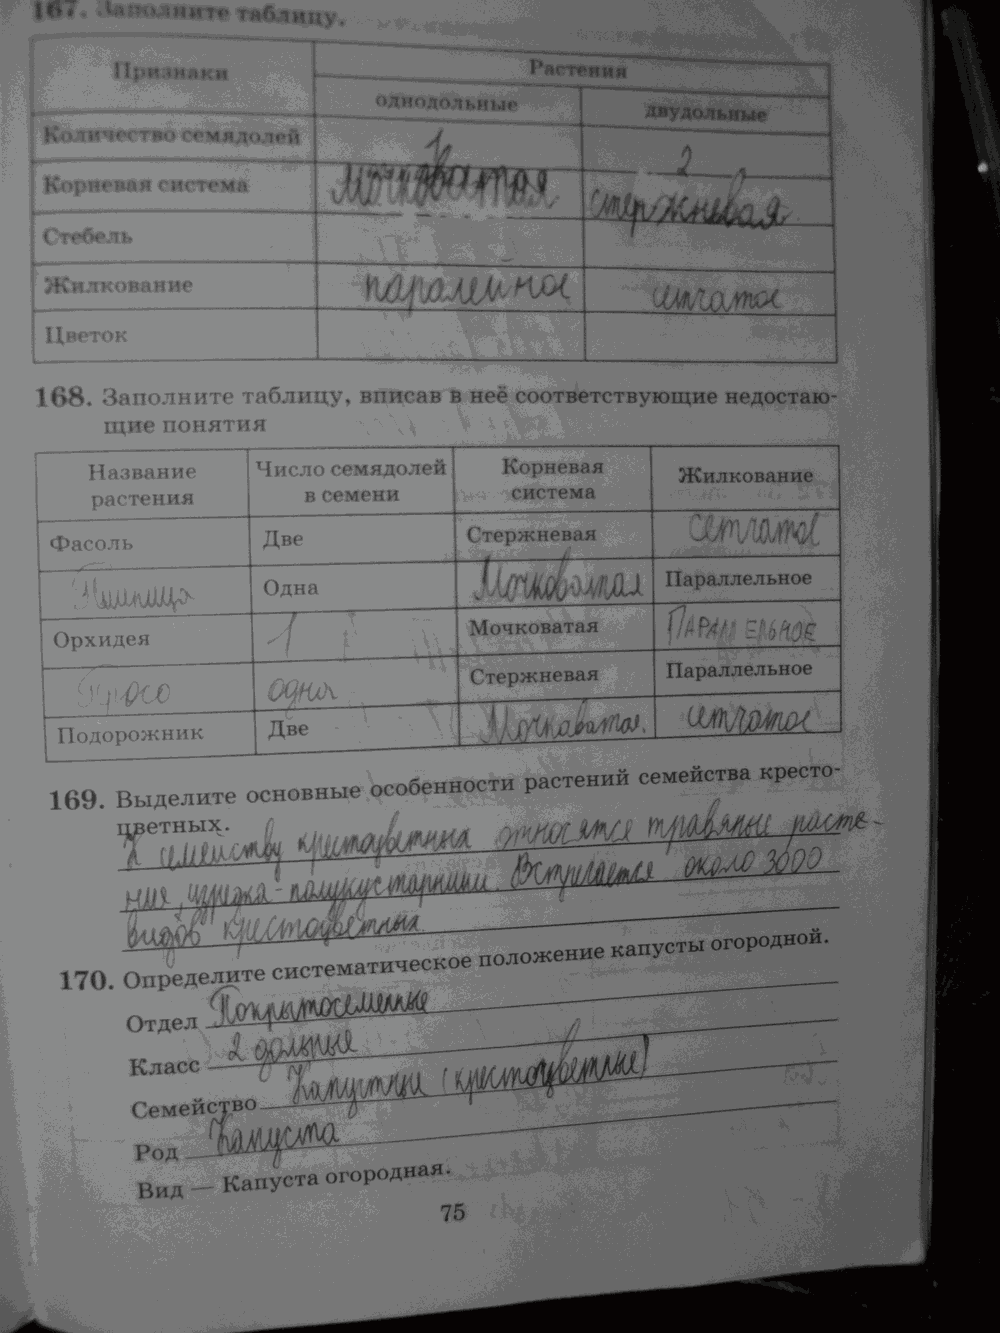 167. Заполните таблицу.
Признаки
Растения
однодольные
двудольные
Количество семядолей
1
2
Корневая система
мочковатая
стержневая
Стебель
Жилкование
паралейное
сетчатое
Цветок
168. Заполните таблицу, вписав в неё соответствующие недостаю-
щие понятия
Название
растения
Число семядолей
в семени
Корневая
система
Жилкование
Фасоль
Две
Стержневая
сетчатое
Пшиница
Одна
Мочковатая
Параллельное
Орхидея
1
Мочковатая
ПАРАЛЕЛЬНОЕ
Просо
одна
Стержневая
Параллельное
Подорожник
Две
Мочковатая.
сетчатое
169. Выделите основные особенности растений семейства кресто-
цветных.
К семейству крестоцветных относятся травяные расте-
ния, изредка - полукустарники. Встречается около 3000
видов крестоцветных.
170. Определите систематическое положение капусты огородной.
Отдел Покрытосеменные
Класс 2 дольные
Семейство Капустные (крестоцветные)
Род Капуста
Вид — Капуста огородная.
75